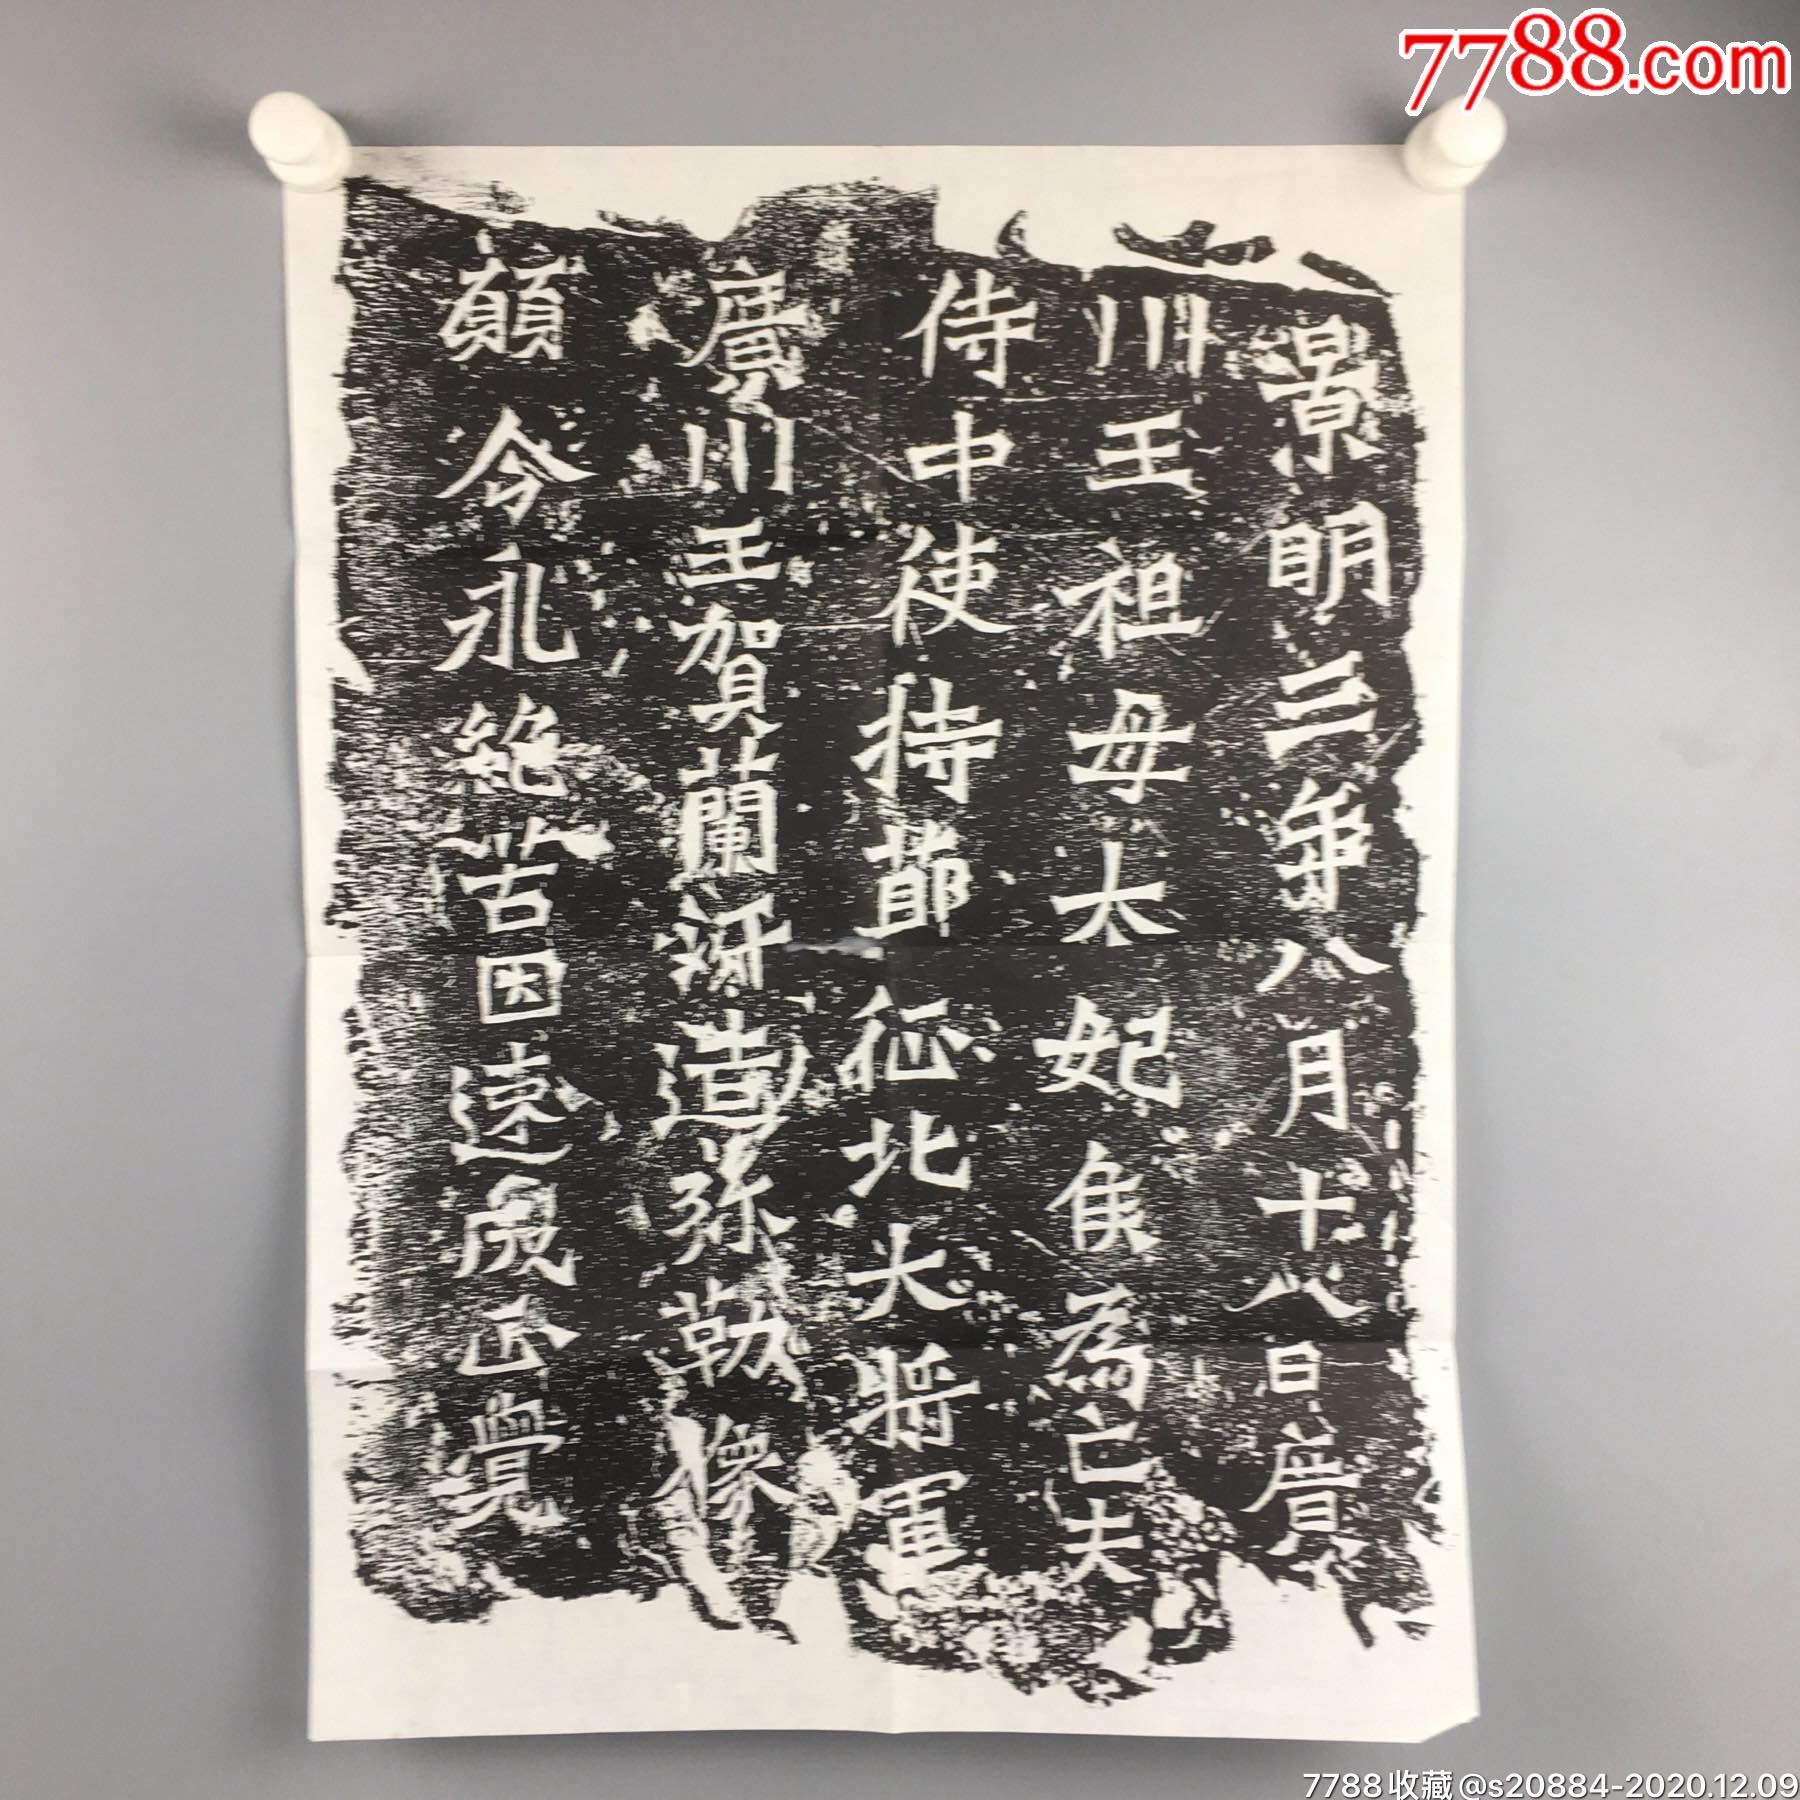 7788.com
景明三年八月十八日廣
川王祖母太妃侯為亡夫
侍中使持節征北大將軍
廣川王賀蘭汗造弥勒像
願令永絕苦因速成正覺
7788收藏@s20884-2020.12.09